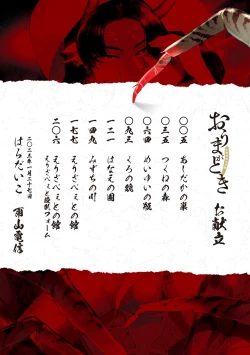 おうまどき
お献立
〇〇五 あしだかの巣
〇三五 つくねの森
〇六四 めいゆいの掟
〇九三 くろの貌
一二一 はなえの園
一四九 みずちの川
一七七 えりざべゑとの館
二〇六 えりざべゑとの館
えりざべゑと撮影フォーム
二〇二三年一月二十七日
はらだいこ
雨山電信